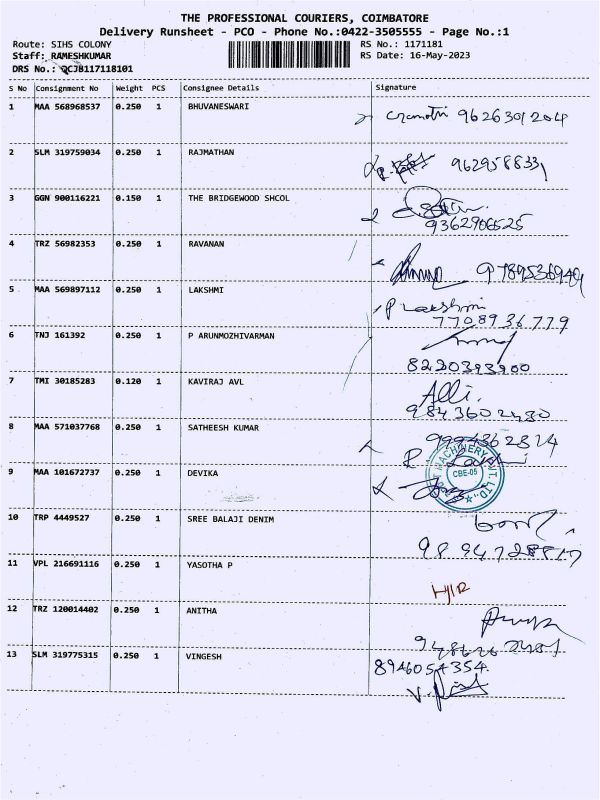 THE PROFESSIONAL COURIERS, COIMBATORE
Delivery Runsheet - PCO - Phone No.:0422-3505555 - Page No.:1
Route: SIHS COLONY RS No.: 1171181
Staff: RAMESHKUMAR RS Date: 16-May-2023
DRS No.: QCJB117118101
S No Consignment No Weight PCS Consignee Details Signature
1 MAA 568968537 0.250 1 BHUVANESWARI 9626301204
2 SLM 319759034 0.250 1 RAJMATHAN
3 GGN 900116221 0.150 1 THE BRIDGEWOOD SHCOL
9362906525
4 TRZ 56982353 0.250 1 RAVANAN
5 MAA 569897112 0.250 1 LAKSHMI P Lakshmi
7708936779
6 TNJ 161392 0.250 1 P ARUNMOZHIVARMAN
8220393900
7 TMI 30185283 0.120 1 KAVIRAJ AVL Alli.
9843602430
8 MAA 571037768 0.250 1 SATHEESH KUMAR
9 MAA 101672737 0.250 1 DEVIKA
CBE-05
10 TRP 4449527 0.250 1 SREE BALAJI DENIM
11 VPL 216691116 0.250 1 YASOTHA P
12 TRZ 120014402 0.250 1 ANITHA
13 SLM 319775315 0.250 1 VINGESH 8946054354.